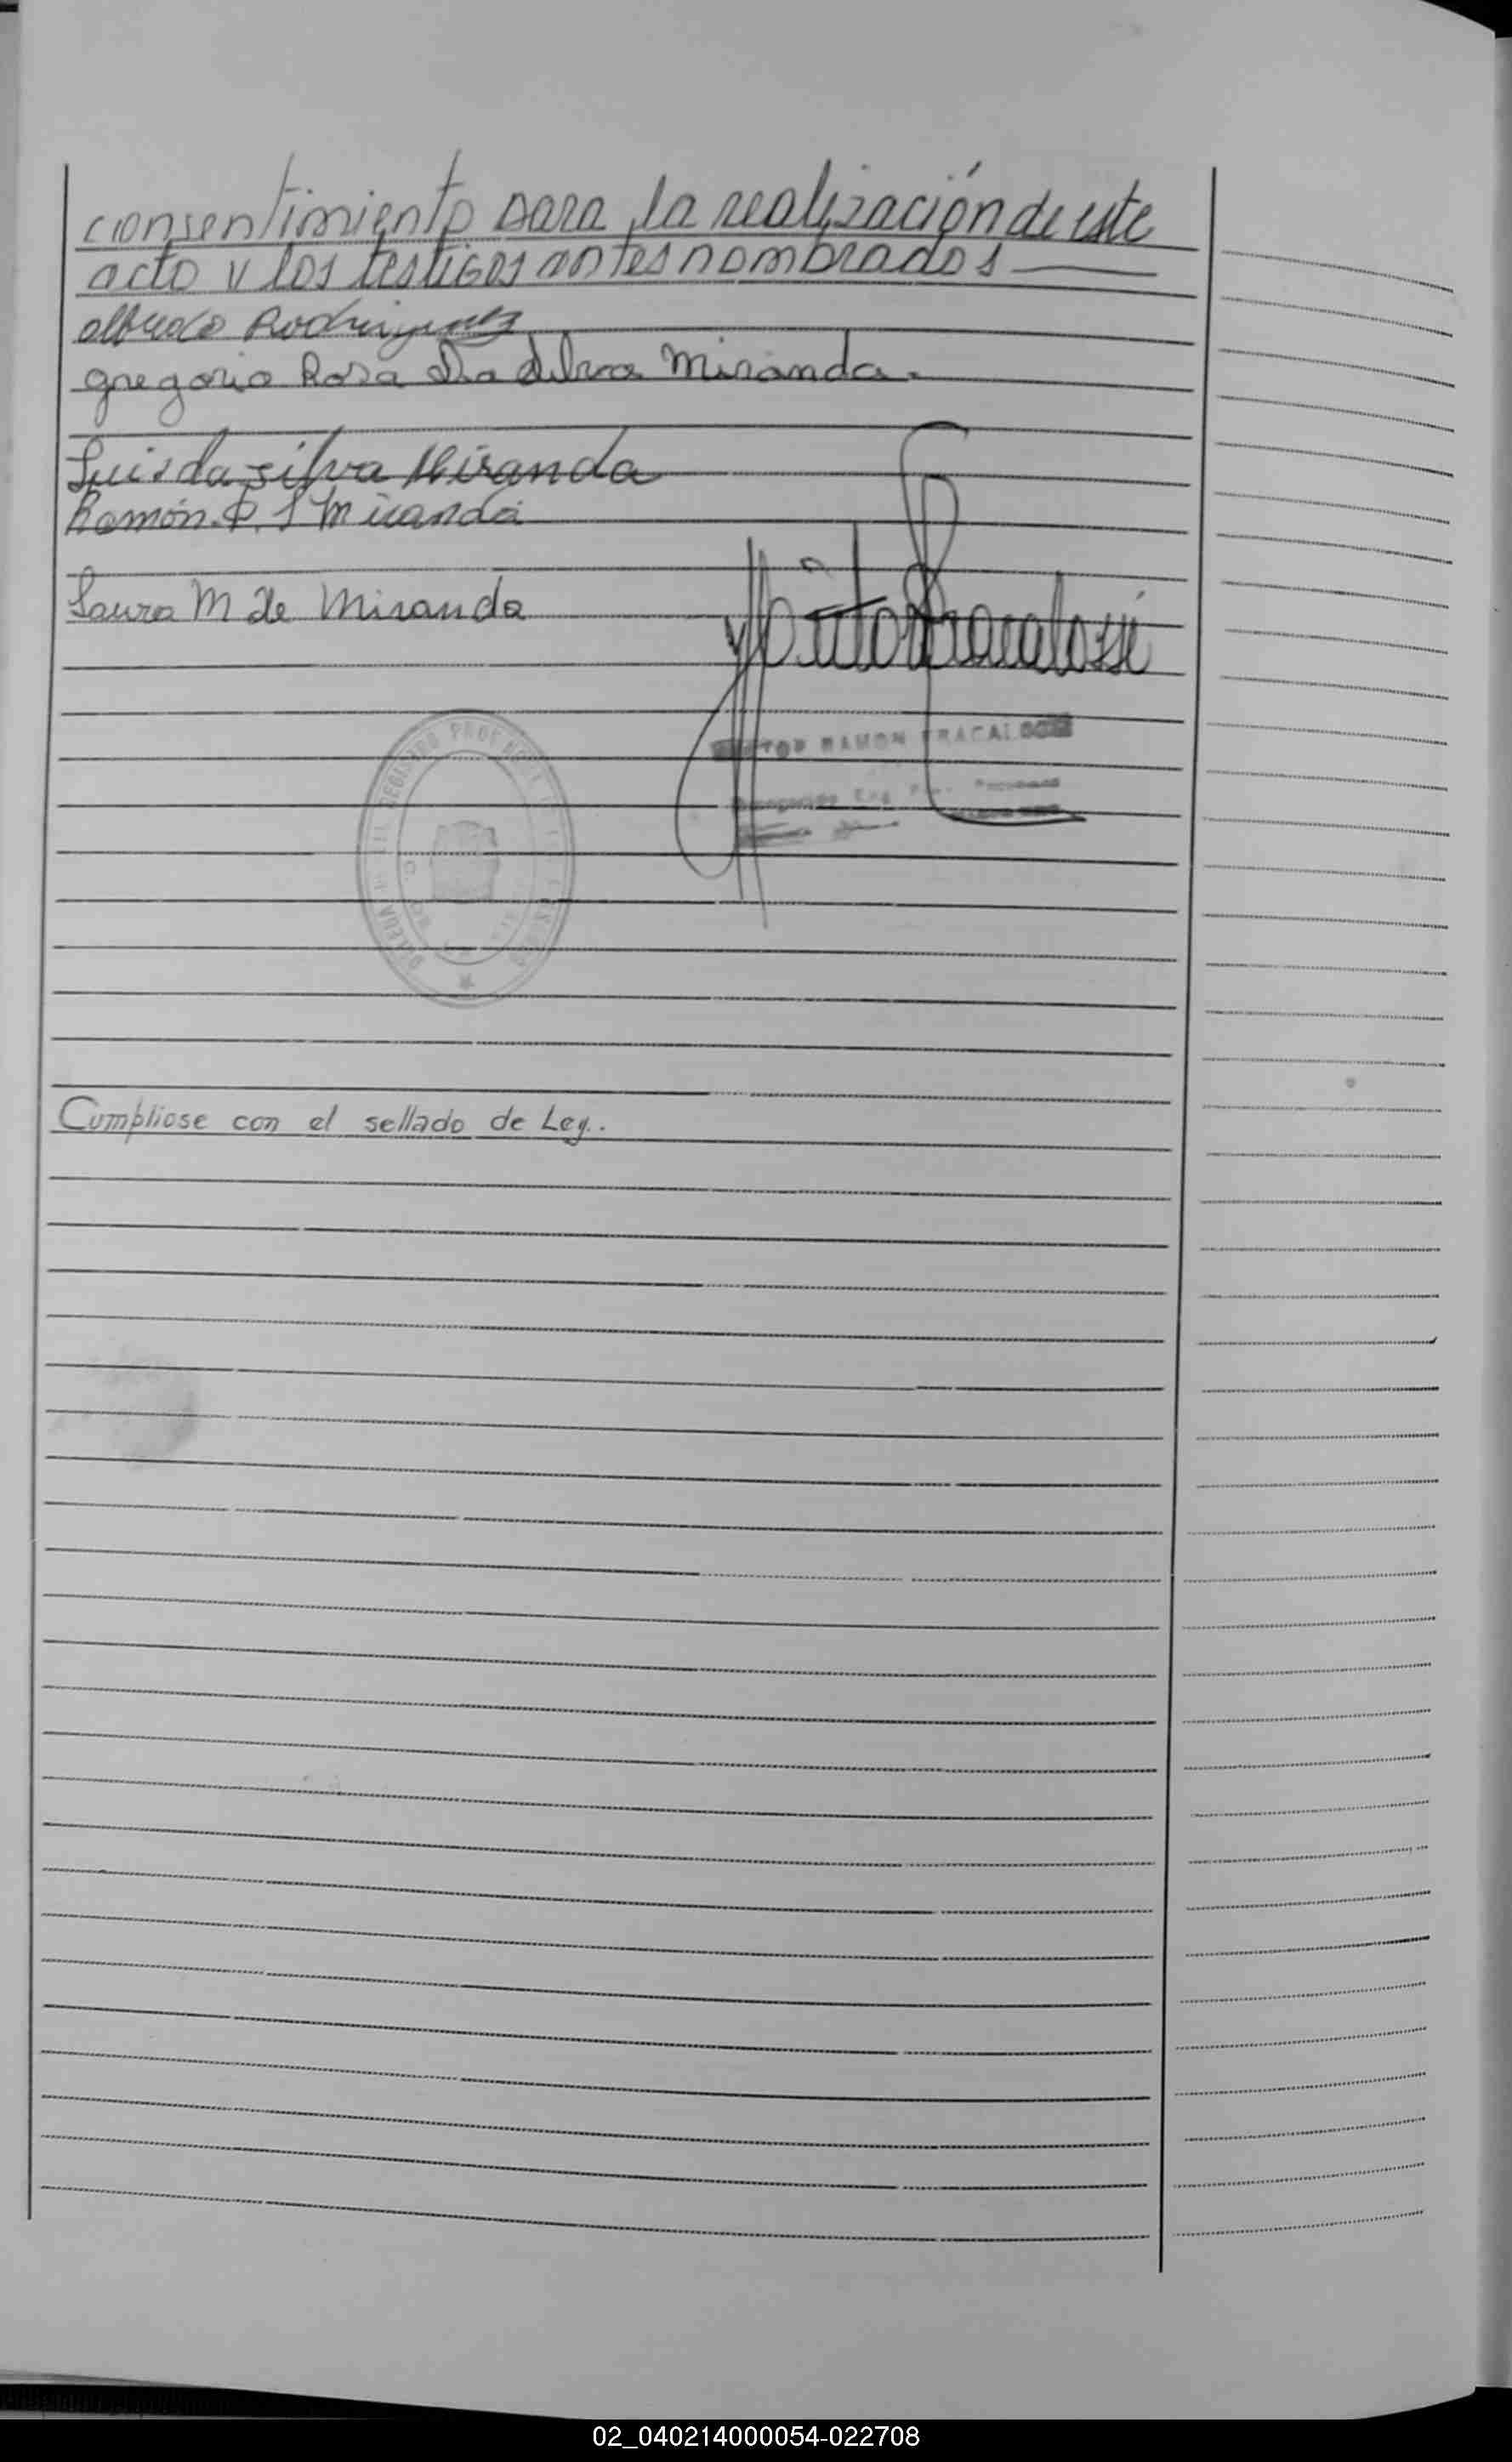 consentimiento para la realización de este
acto y los testigos antes nombrados
Alfredo Rodriguez
gregoria Rosa Da Silva Miranda.
Luis da silva Miranda
Ramón. D. S Miranda
Laura M de Miranda
Fracalossi
RAMON FRACALOSSI
REGISTRO
Cumpliose con el sellado de Ley.
02_040214000054-022708